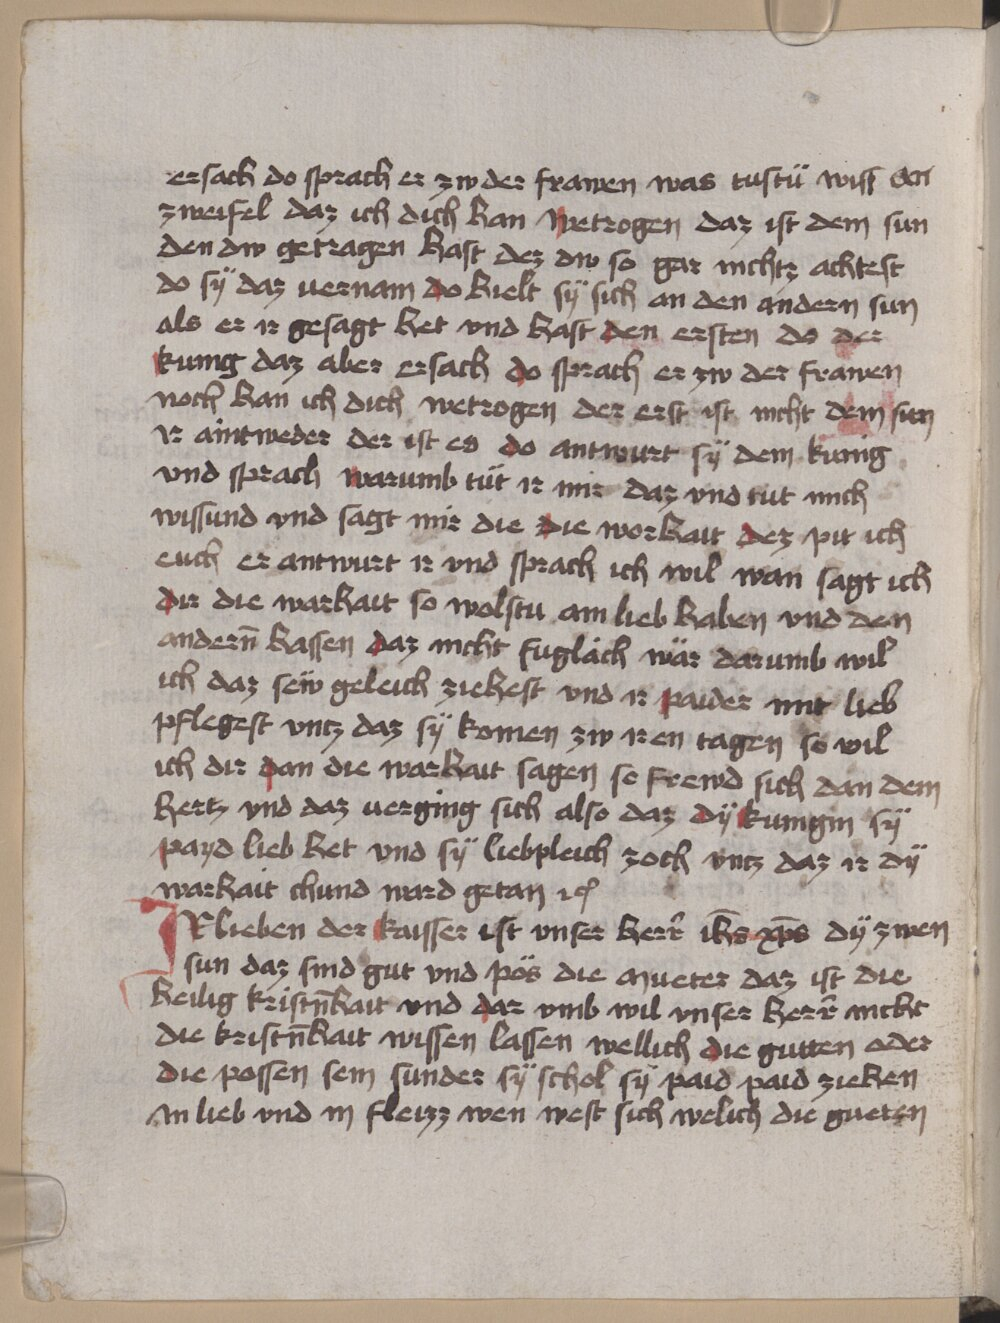 ersach do sprach er zw der frawen was tustu wiss an
zweifel daz ich dich han wetrogen daz ist dem sun
den dw getragen hast dez dw so gar nichtz achtest
do sÿ daz vernam do hielt sÿ sich an den andern sun
als er ir gesagt het vnd hast den ersten do der
kunig daz aber ersach do sprach er zw der frawen
noch han ich dich wetrogen der erst ist nicht dem sun
ir aintweder der ist es do antwurt sÿ dem kunig
vnd sprach warumb tüt ir mir daz vnd tut mich
wissund vnd sagt mir die die worhait dez pit ich
euch er antwurt ir vnd sprach ich wil wan sagt ich
dir die warhait so wolstu ain lieb haben vnd den
andern̄ hassen daz nicht fugläch wär darumb wil
ich daz seẅ geleich ziehest vnd ir paider mit lieb
pflegest vntz daz sÿ komen zw iren tagen so wil
ich dir dan die warhait sagen so frewd sich dan dem
hertz vnd daz verging sich also daz dÿ kunigin sÿ
payd lieb het vnd sÿ liebpleich zoch vntz daz ir dÿ
warhait chund ward getan ꝛc
IR lieben der kaisser ist vnser herr̄ ih̄s xp̄s dÿ zwen
sun daz sind gut vnd pös die mueter daz ist die
heilig kristn̄hait vnd dar vmb wil vnser herr̄ nicht
die kristn̄hait wissen lassen wellich die gutten oder
die possen sein sunder sÿ schol sÿ paid paid ziehen
in lieb vnd in fleizz wen west sich welich die gueten